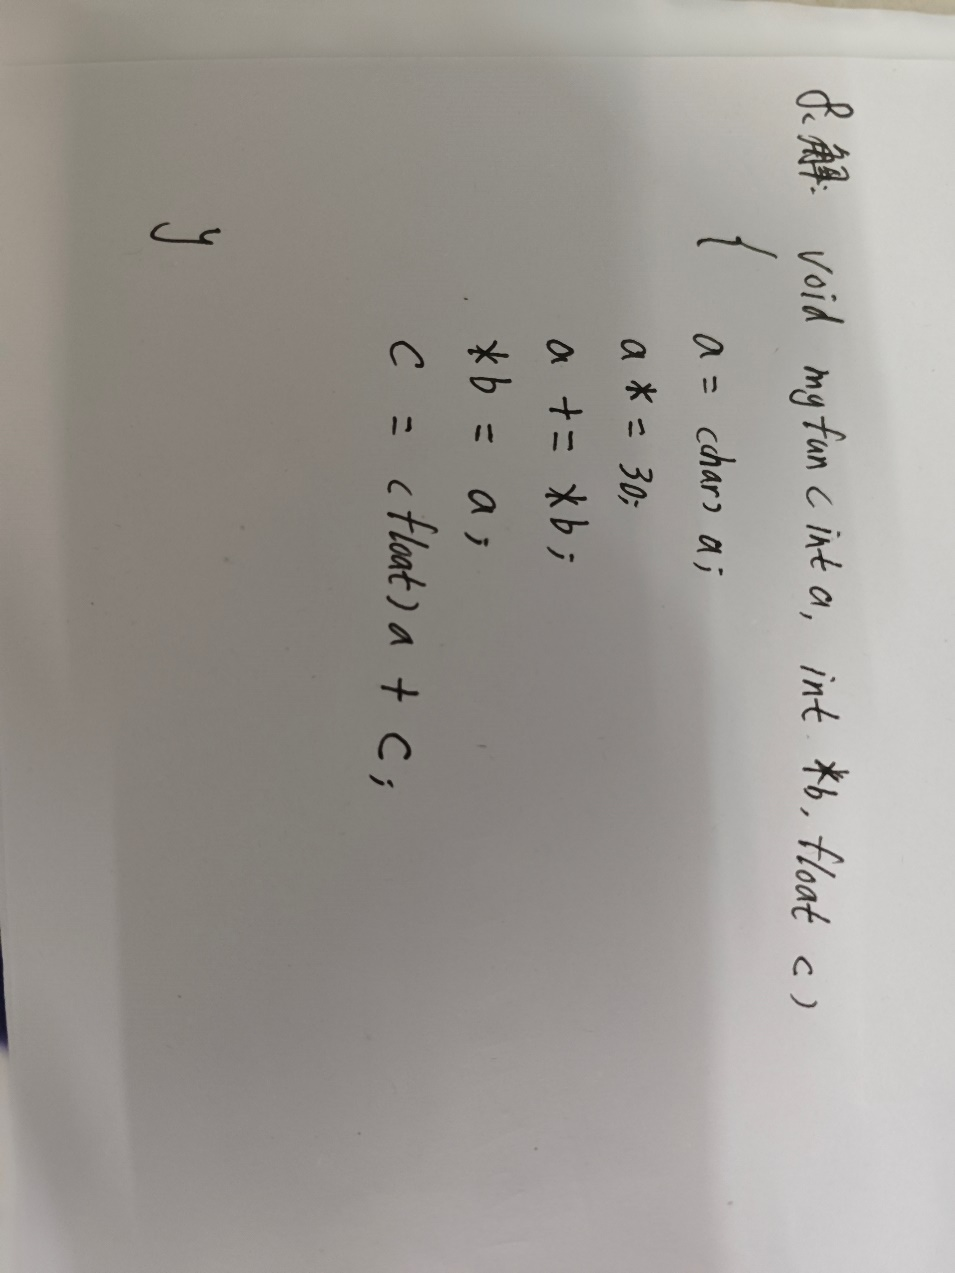 8. 解:
void myfun (int a, int *b, float c)
{
a = (char) a;
a *= 30;
a += *b;
*b = a;
c = (float) a + c;
}